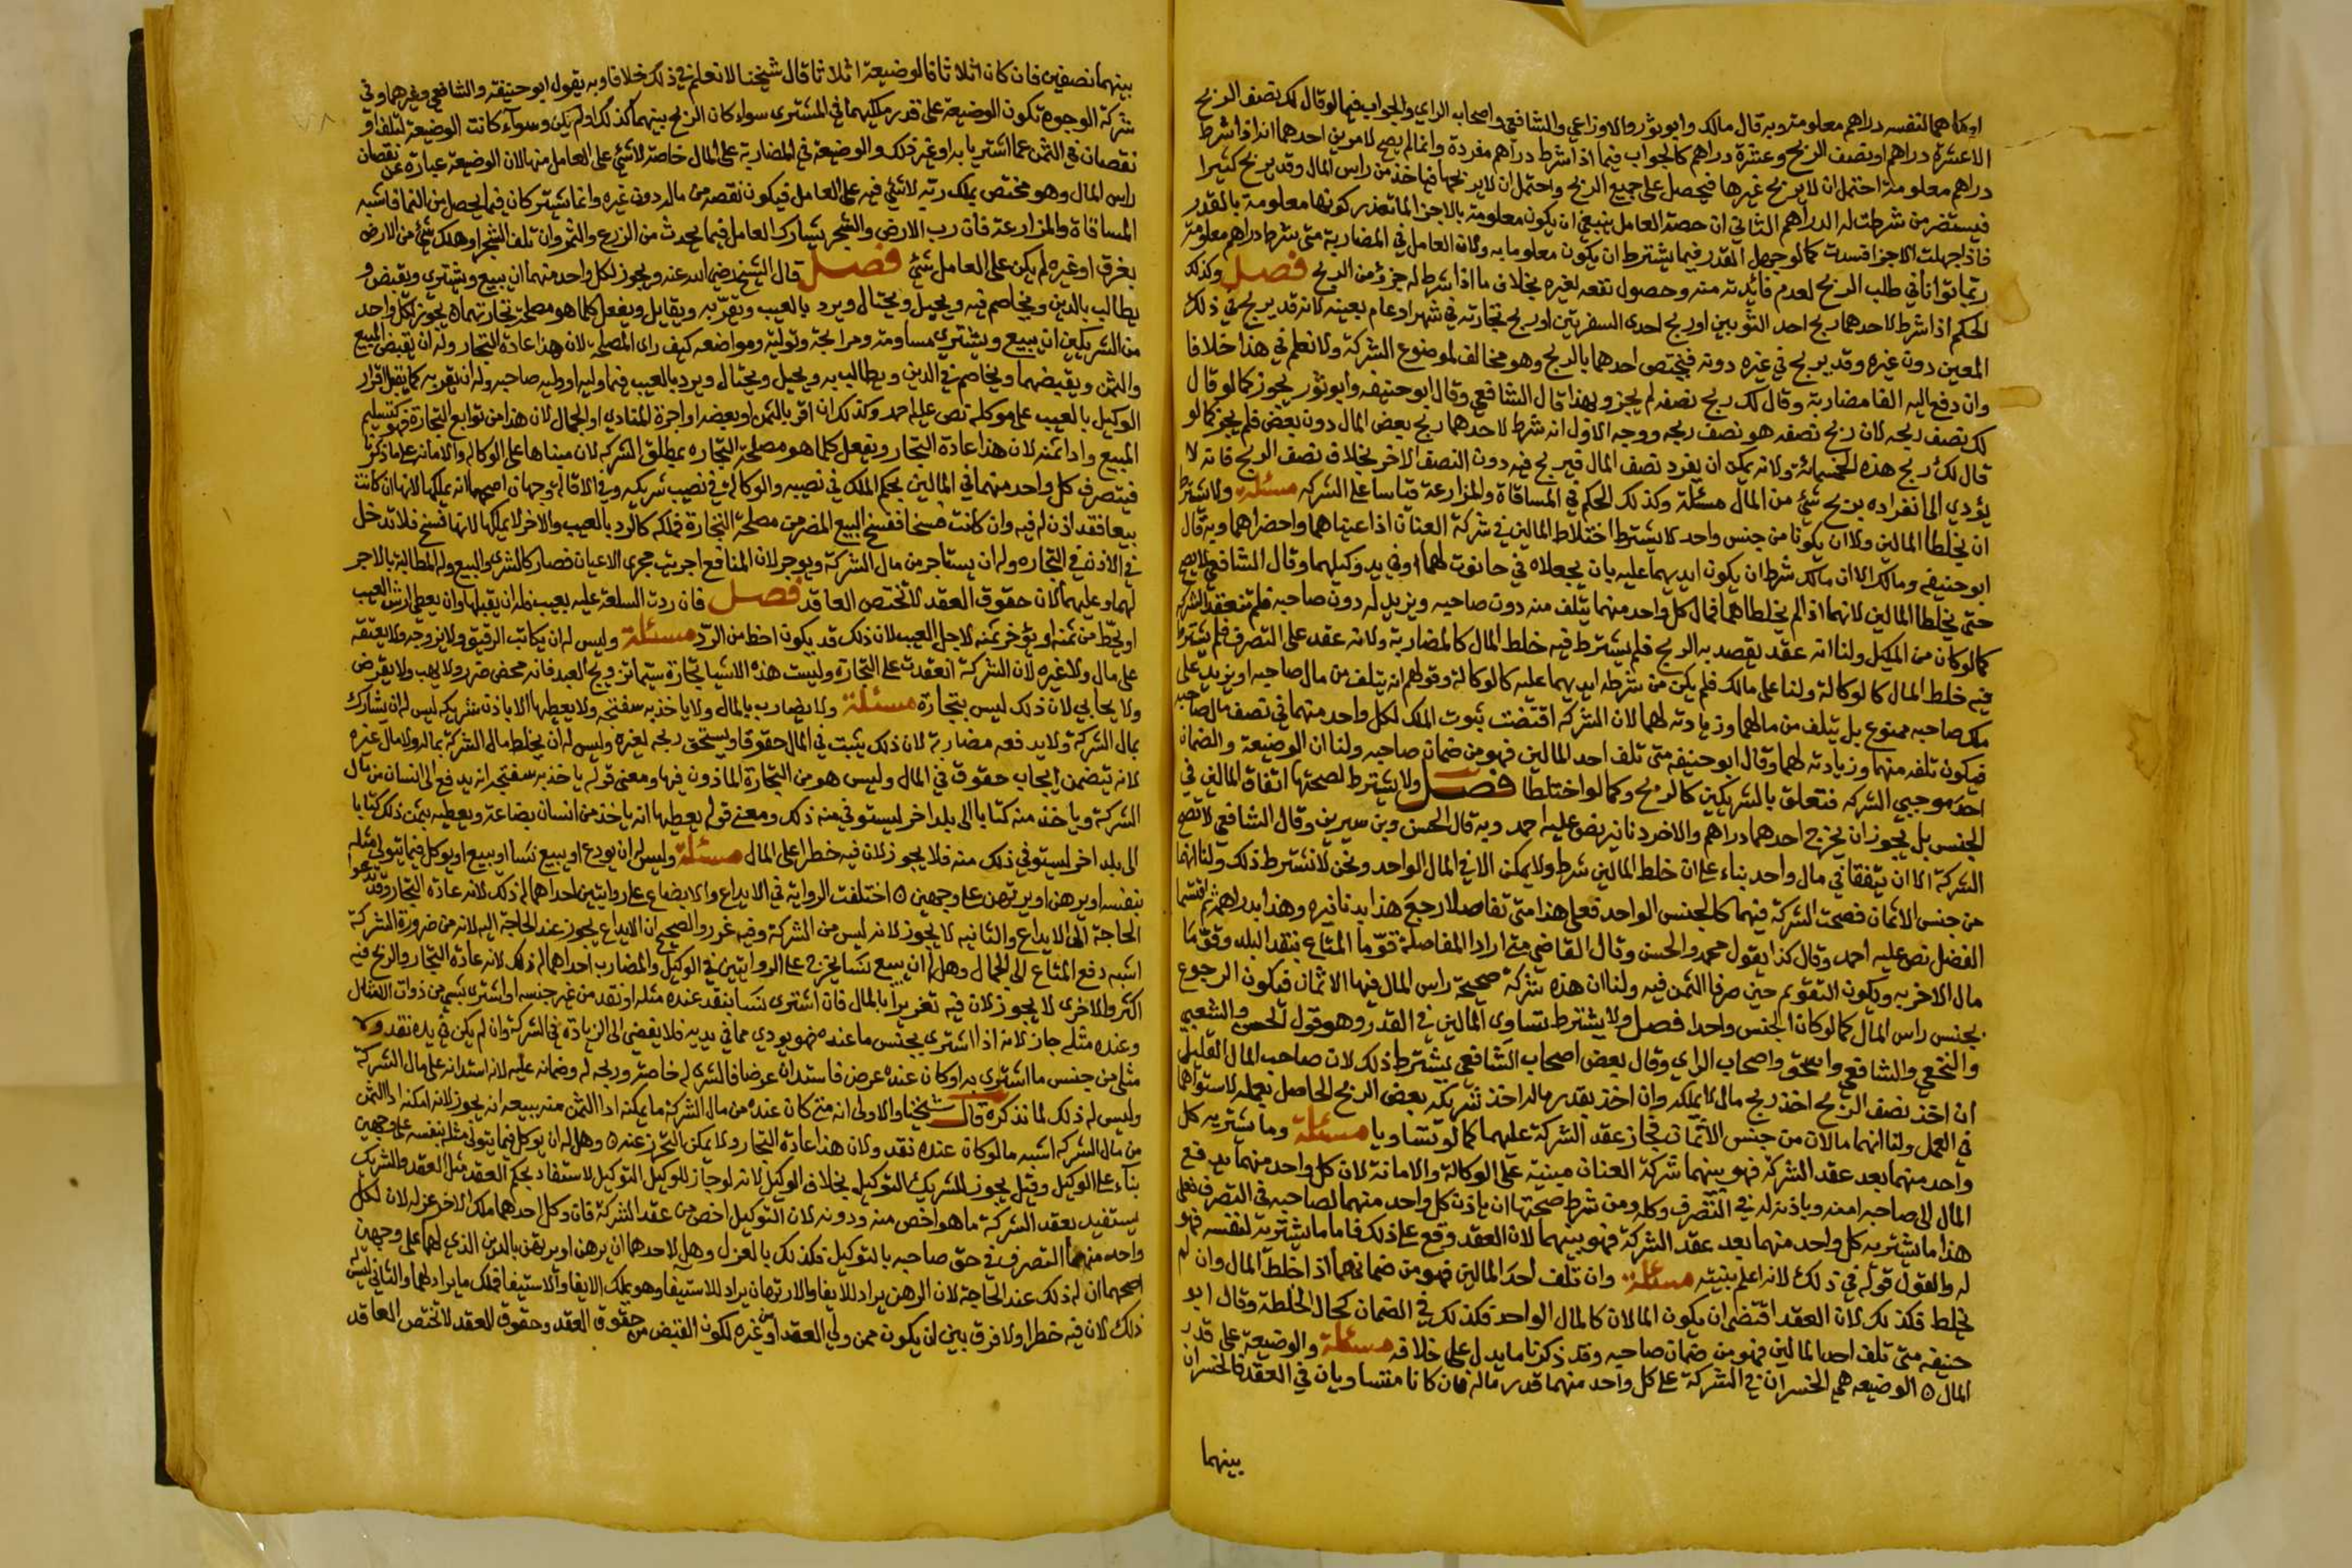 اوكلاهما لنفسه دراهم معلومة وبه قال مالك وابو ثور والاوزاعي والشافعي واصحاب الراي والجواب فيما لو قال لك نصف الربح
الا عشرة دراهم او نصف الربح وعشرة دراهم كالجواب فيما اذا شرط دراهم مفردة وانما لم يصح لامرين احدهما انه اذا شرط
دراهم معلومة احتمل ان لا يربح غيرها فيحصل على جميع الربح واحتمل ان لا يربحها فياخذ من راس المال وقد يربح كثيرا
فيستضر من شرطت له الدراهم الثاني ان حصة العامل ينبغي ان يكون معلومة بالاجزا لما تعذر كونها معلومة بالقدر
فاذا جهلت الاجزا فسدت كما لو جهل القدر فيما يشترط ان يكون معلوما به ولان العامل في المضاربة متى شرط دراهم معلومة
ربما توانا في طلب الربح لعدم فائدته منه وحصول نفعه لغيره بخلاف ما اذا شرط له جزؤ من الربح فصل وكذلك
الحكم اذا شرط لاحدهما ربح احد الثوبين او ربح احدى السفرتين او ربح تجارته في شهر او عام بعينه لانه قد يربح في ذلك
المعين دون غيره وقد يربح في غيره دونه فيختص احدهما بالربح وهو مخالف لموضوع الشركة ولا نعلم في هذا خلافا
وان دفع اليه الفا مضاربة وقال لك ربح نصفه لم يجز وبهذا قال الشافعي وقال ابو حنيفه وابو ثور يجوز كما لو قال
لك نصف ربحه لان ربح نصفه هو نصف ربحه ووجه الاول انه شرط لاحدهما ربح بعض المال دون بعض فلم يجز كما لو
قال لك ربح هذه الخمسمائة ولانه يمكن ان يفرد نصف المال فيربح فيه دون النصف الاخر بخلاف نصف الربح فانه لا
يؤدي الى انفراده بربح شئ من المال مسئلة وكذلك الحكم في المساقاة والمزارعة قياسا على الشركه مسئلة ولا يشترط
ان يخلطا المالين ولا ان يكونا من جنس واحد لا يشترط اختلاط المالين في شركة العنان اذا عيناهما واحضراهما وبه قال
ابو حنيفه ومالك الا ان مالك شرط ان يكون ايديهما عليه بان يجعلاه في حانوت لهما او في يد وكيلهما وقال الشافعي لا يصح
حتى يخلطا المالين لانهما اذا لم يخلطاهما فمال كل واحد منهما يتلف منه دون صاحبه ويزيد له دون صاحبه فلم تنعقد الشركة
كما لو كان من المكيل ولنا انه عقد يقصد به الربح فلم يشترط فيه خلط المال كالمضاربة ولانه عقد على التصرف فلم يشترط
فيه خلط المال كالوكالة ولنا على مالك فلم يكن من شرطه ايديهما عليه كالوكالة وقولهم انه يتلف من مال صاحبه او يزيد على
ملك صاحبه ممنوع بل يتلف من مالهما وزيادته لهما لان الشركه اقتضت ثبوت الملك لكل واحد منهما في نصف مال صاحبه
فيكون تلفه منهما وزيادته لهما وقال ابو حنيفه متى تلف احد المالين فهو من ضمان صاحبه ولنا ان الوضيعة والضمان
احد موجبي الشركه فتعلق بالشريكين كالربح وكما لو اختلطا فصل ولا يشترط لصحتها اتفاق المالين في
الجنس بل يجوز ان يخرج احدهما دراهم والاخر دنانير نص عليه احمد وبه قال الحسن وبن سيرين وقال الشافعي لا تصح
الشركة الا ان يتفقا في مال واحد بناء على ان خلط المالين شرط ولا يمكن الا في المال الواحد ونحن لا نشترط ذلك ولنا انهما
من جنس الاثمان فصحت الشركة فيهما كالجنس الواحد فعلى هذا متى تفاصلا رجع هذا بدنانيره وهذا بدراهمه ثم اقتسما
الفضل نص عليه احمد وقال كذا يقول محمد والحسن وقال القاضي متى ارادا المفاصلة قوّما المتاع بنقد البلد وقوّما
مال الاخر به ويكون التقويم حين صرفا الثمن فيه ولنا ان هذه شركة صحيحة راس المال فيها الاثمان فيكون الرجوع
بجنس راس المال كما لو كان الجنس واحدا فصل ولا يشترط تساوي المالين في القدر وهو قول الحسن والشعبي
والنخعي والشافعي واسحق واصحاب الراي وقال بعض اصحاب الشافعي يشترط ذلك لان صاحب المال القليل
ان اخذ نصف الربح اخذ ربح مال لا يملكه وان اخذ بقدر ماله اخذ شريكه بعض الربح الحاصل بعمله لاستواهما
في العمل ولنا انهما مالان من جنس الاثمان فجاز عقد الشركة عليهما كما لو تساويا مسئلة وما يشتريه كل
واحد منهما بعد عقد الشركة فهو بينهما شركة العنان مبنية على الوكالة والامانة لان كل واحد منهما يدفع
المال الى صاحبه امنه وباذنه له في التصرف وكله ومن شرط صحتها ان ياذن كل واحد منهما لصاحبه في التصرف فعلى
هذا ما يشتريه كل واحد منهما بعد عقد الشركة فهو بينهما لان العقد وقع على ذلك فاما ما يشتريه لنفسه فهو
له والقول قوله في ذلك لانه اعلم بنيته مسئلة وان تلف احد المالين فهو من ضمانهما اذا خلطا المال وان لم
يخلط فكذلك لان العقد اقتضى ان يكون المالان كالمال الواحد فكذلك في الضمان كحال الخلطة وقال ابو
حنيفه متى تلف احد المالين فهو من ضمان صاحبه وقد ذكرنا ما يدل على خلافه مسئلة والوضيعة على قدر
المال ه الوضيعه هي الخسران في الشركة على كل واحد منهما قدر ماله فان كانا متساويان في العقد فالخسران
بينهما
بينهما نصفين فان كان اثلاثا فالوضيعة اثلاثا قال شيخنا لا نعلم في ذلك خلافا وبه يقول ابو حنيفه والشافعي وغيرهما وفي
شركة الوجوه تكون الوضيعة على قدر ملكيهما في المشترى سواء كان الربح بينهما كذلك او لم يكن وسواء كانت الوضيعة لتلف او
نقصان في الثمن عما اشتريا به او غير ذلك والوضيعة في المضاربة على المال خاصة لا شئ على العامل منها لان الوضيعة عبارة عن نقصان
راس المال وهو مختص بملك ربه لا شئ فيه على العامل فيكون نقصه من ماله دون غيره وانما يشتركان فيما يحصل من النما فاشبه
المساقاة والمزارعة فان رب الارض والشجر يشارك العامل فيما يحدث من الزرع والثمر وان تلف الشجر او هلك شئ من الارض
بغرق او غيره لم يكن على العامل شئ فصل قال الشيخ رضي الله عنه ويجوز لكل واحد منهما ان يبيع ويشتري ويقبض و
يطالب بالدين ويخاصم فيه ويحيل ويحتال ويرد بالعيب ويقرّ به ويقايل ويفعل كلما هو مصلحة تجارتهما ه يجوز لكل واحد
من الشريكين ان يبيع ويشتري مساومة ومرابحة وتولية ومواضعه كيف راى المصلحة لان هذا عادة التجار وله ان يقبض المبيع
والثمن ويقبضهما ويخاصم في الدين ويطالب به ويحيل ويحتال ويرد بالعيب فيما وليه او وليه صاحبه وله ان يقر به كما يقبل اقرار
الوكيل بالعيب على موكله نص عليه احمد وكذلك ان اقر بالثمن او بعضه او اجرة المنادي او الحمال لان هذا من توابع التجارة فهو كتسليم
المبيع واداء ثمنه لان هذا عادة التجار وتفعل كلما هو مصلحة التجاره بمطلق الشركه لان مبناها على الوكاله والامانه على ما ذكرنا
فيتصرف كل واحد منهما في المالين بحكم الملك في نصيبه والوكالة في نصيب شريكه وفي الاقالة وجهان اصحهما انه يملكها لانها ان كانت
بيعا فقد اذن له فيه وان كانت فسخا ففسخ البيع المضر من مصلحة التجارة فملكه كالرد بالعيب والاخر لا يملكها لانها فسخ فلا تدخل
في الاذن في التجاره وله ان يستاجر من مال الشركه ويوجر لان المنافع اجريت مجرى الاعيان فصار كالشرى والبيع وله المطالبة بالاجر
لهما وعليهما لان حقوق العقد لا تختص العاقد فصل فان ردت السلعة عليه بعيب فله ان يقبلها وان يعطي ارش العيب
او يحط من ثمنه او يؤخر ثمنه لاجل العيب لان ذلك قد يكون احظ من الردّ مسئلة وليس له ان يكاتب الرقيق ولا يزوجه ولا يعتقه
على مال ولا غيره لان الشركة انعقدت على التجارة وليست هذه الاشيا تجارة سيما تزويج العبد فانه محض ضرر ولا يهب ولا يقرض
ولا يحابي لان ذلك ليس بتجارة مسئلة ولا يضارب بالمال ولا ياخذ به سفتجه ولا يعطيها الا باذن شريكه ليس له ان يشارك
بمال الشركة ولا يدفعه مضاربة لان ذلك يثبت في المال حقوقا ويستحق ربحه لغيره وليس له ان يخلط مال الشركة بماله ولا مال غيره
لانه يتضمن ايجاب حقوق في المال وليس هو من التجارة الماذون فيها ومعنى قوله ياخذ به سفتجه انه يدفع الى انسان من مال
الشركة وياخذ منه كتابا الى بلد اخر ليستوفي منه ذلك ومعنى قوله يعطيها انه ياخذ من انسان بضاعة ويعطيه بثمن ذلك كتابا
الى بلد اخر ليستوفي ذلك منه فلا يجوز لان فيه خطرا على المال مسئلة وليس له ان يودع او يبيع نسا او يبيع او يوكل فيما يتولى مثله
بنفسه او يرهن او يرتهن على وجهين ه اختلفت الرواية في الايداع والابضاع على روايتين احداهما له ذلك لانه عادة التجار وقد تدعوا
الحاجة الى الايداع والثانيه لا يجوز لانه ليس من الشركة وفيه غرر والصحيح ان الايداع يجوز عند الحاجة اليه لانه من ضرورة الشركة
اشبه دفع المتاع الى الحمال وهل له ان يبيع نسا يخرج على الروايتين في الوكيل والمضارب احداهما له ذلك لانه عادة التجار والربح فيه
اكثر والاخرى لا يجوز لان فيه تغريرا بالمال فان اشترى نسا بنقد عنده مثله او نقد من غير جنسه او اشترى بشي من ذوات الامثال
وعنده مثله جاز لانه اذا اشترى بجنس ما عنده فهو يودي مما في يديه فلا يفضي الى الزيادة في الشركة وان لم يكن في يده نقد ولا
مثلي من جنس ما اشترى به او كان عنده عرض فاستدان عرضا فالشرى له خاصة وربحه له وضمانه عليه لانه استدانه على مال الشركة
وليس له ذلك لما نذكره قال شيخنا والاولى انه متى كان عنده من مال الشركة ما يمكنه ادا الثمن منه ببيعه انه يجوز لانه امكنه ادا الثمن
من مال الشركه اشبه ما لو كان عنده نقد ولان هذا عادة التجار ولا يمكن التحرز عنه ه وهل له ان يوكل فيما يتولى مثله بنفسه على وجهين
بناء على الوكيل وقيل يجوز للشريك التوكيل بخلاف الوكيل لانه لو جاز للوكيل التوكيل لاستفاد بحكم العقد مثل العقد والشريك
يستفيد بعقد الشركة ما هو اخص منه ودونه لان التوكيل اخص من عقد الشركة فان وكل احدهما ملك الاخر عزله لان لكل
واحد منهما التصرف في حق صاحبه بالتوكيل فكذلك بالعزل وهل لاحدهما ان يرهن او يرتهن بالدين الذي لهما على وجهين
اصحهما ان له ذلك عند الحاجة لان الرهن يراد للايفا والارتهان يراد للاستيفا وهو يملك الايفا والاستيفا فملك ما يراد لهما والثاني ليس له
ذلك لان فيه خطرا ولا فرق بين ان يكون ممن ولي العقد او من غيره لكون القبض من حقوق العقد وحقوق العقد لا تختص العاقد